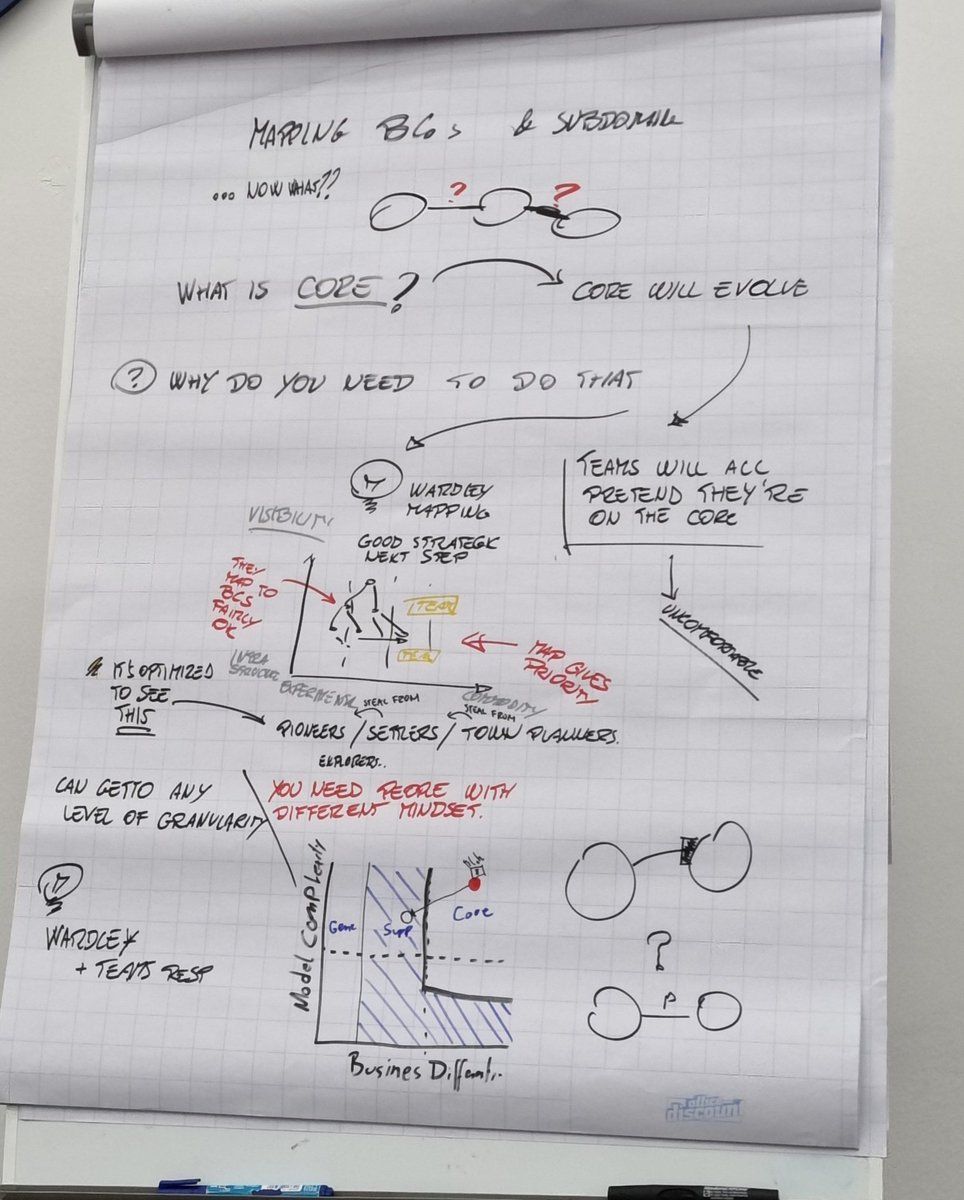 MAPPING BCs & SUBDOMAIN
... NOW WHAT??
? ?
WHAT IS CORE?
CORE WILL EVOLVE
? WHY DO YOU NEED TO DO THAT
WARDLEY
MAPPING
GOOD STRATEGIC
NEXT STEP
TEAMS WILL ALL
PRETEND THEY'RE
ON THE CORE
UNCOMFORTABLE
VISIBILITY
THEY
MAP TO
BCS
FAIRLY
OK
TEAM
MAP GIVES
PRIORITY
INFRA
STRUCTURE
IT'S OPTIMIZED
TO SEE
THIS
EXPERIMENTAL
STEAL FROM
COMMODITY
STEAL FROM
PIONEERS / SETTLERS / TOWN PLANNERS.
EXPLORERS..
CAN GET TO ANY
LEVEL OF GRANULARITY
YOU NEED PEOPLE WITH
DIFFERENT MINDSET.
WARDLEY
+ TEAMS RESP
Model Complexity
Gene
Supp
Core
Busines Differenti..
?
P
office
discount